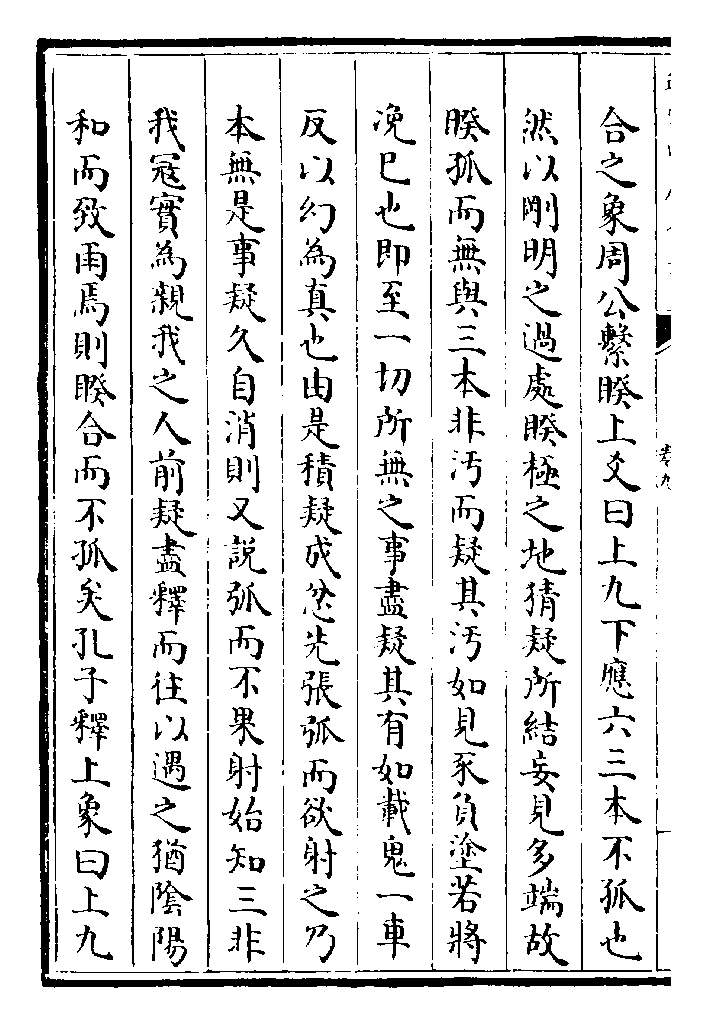 合之象周公繫睽上爻曰上九下應六三本不孤也
然以剛明之過處睽極之地猜疑所結妄見多端故
睽孤而無與三本非汚而疑其汚如見豕負塗若將
浼巳也即至一切所無之事盡疑其有如載鬼一車
反以幻為真也由是積疑成忿先張弧而欲射之乃
本無是事疑久自消則又説弧而不果射始知三非
我冦實為親我之人前疑盡釋而往以遇之猶陰陽
和而致雨焉則睽合而不孤矣孔子釋上象曰上九
卷九